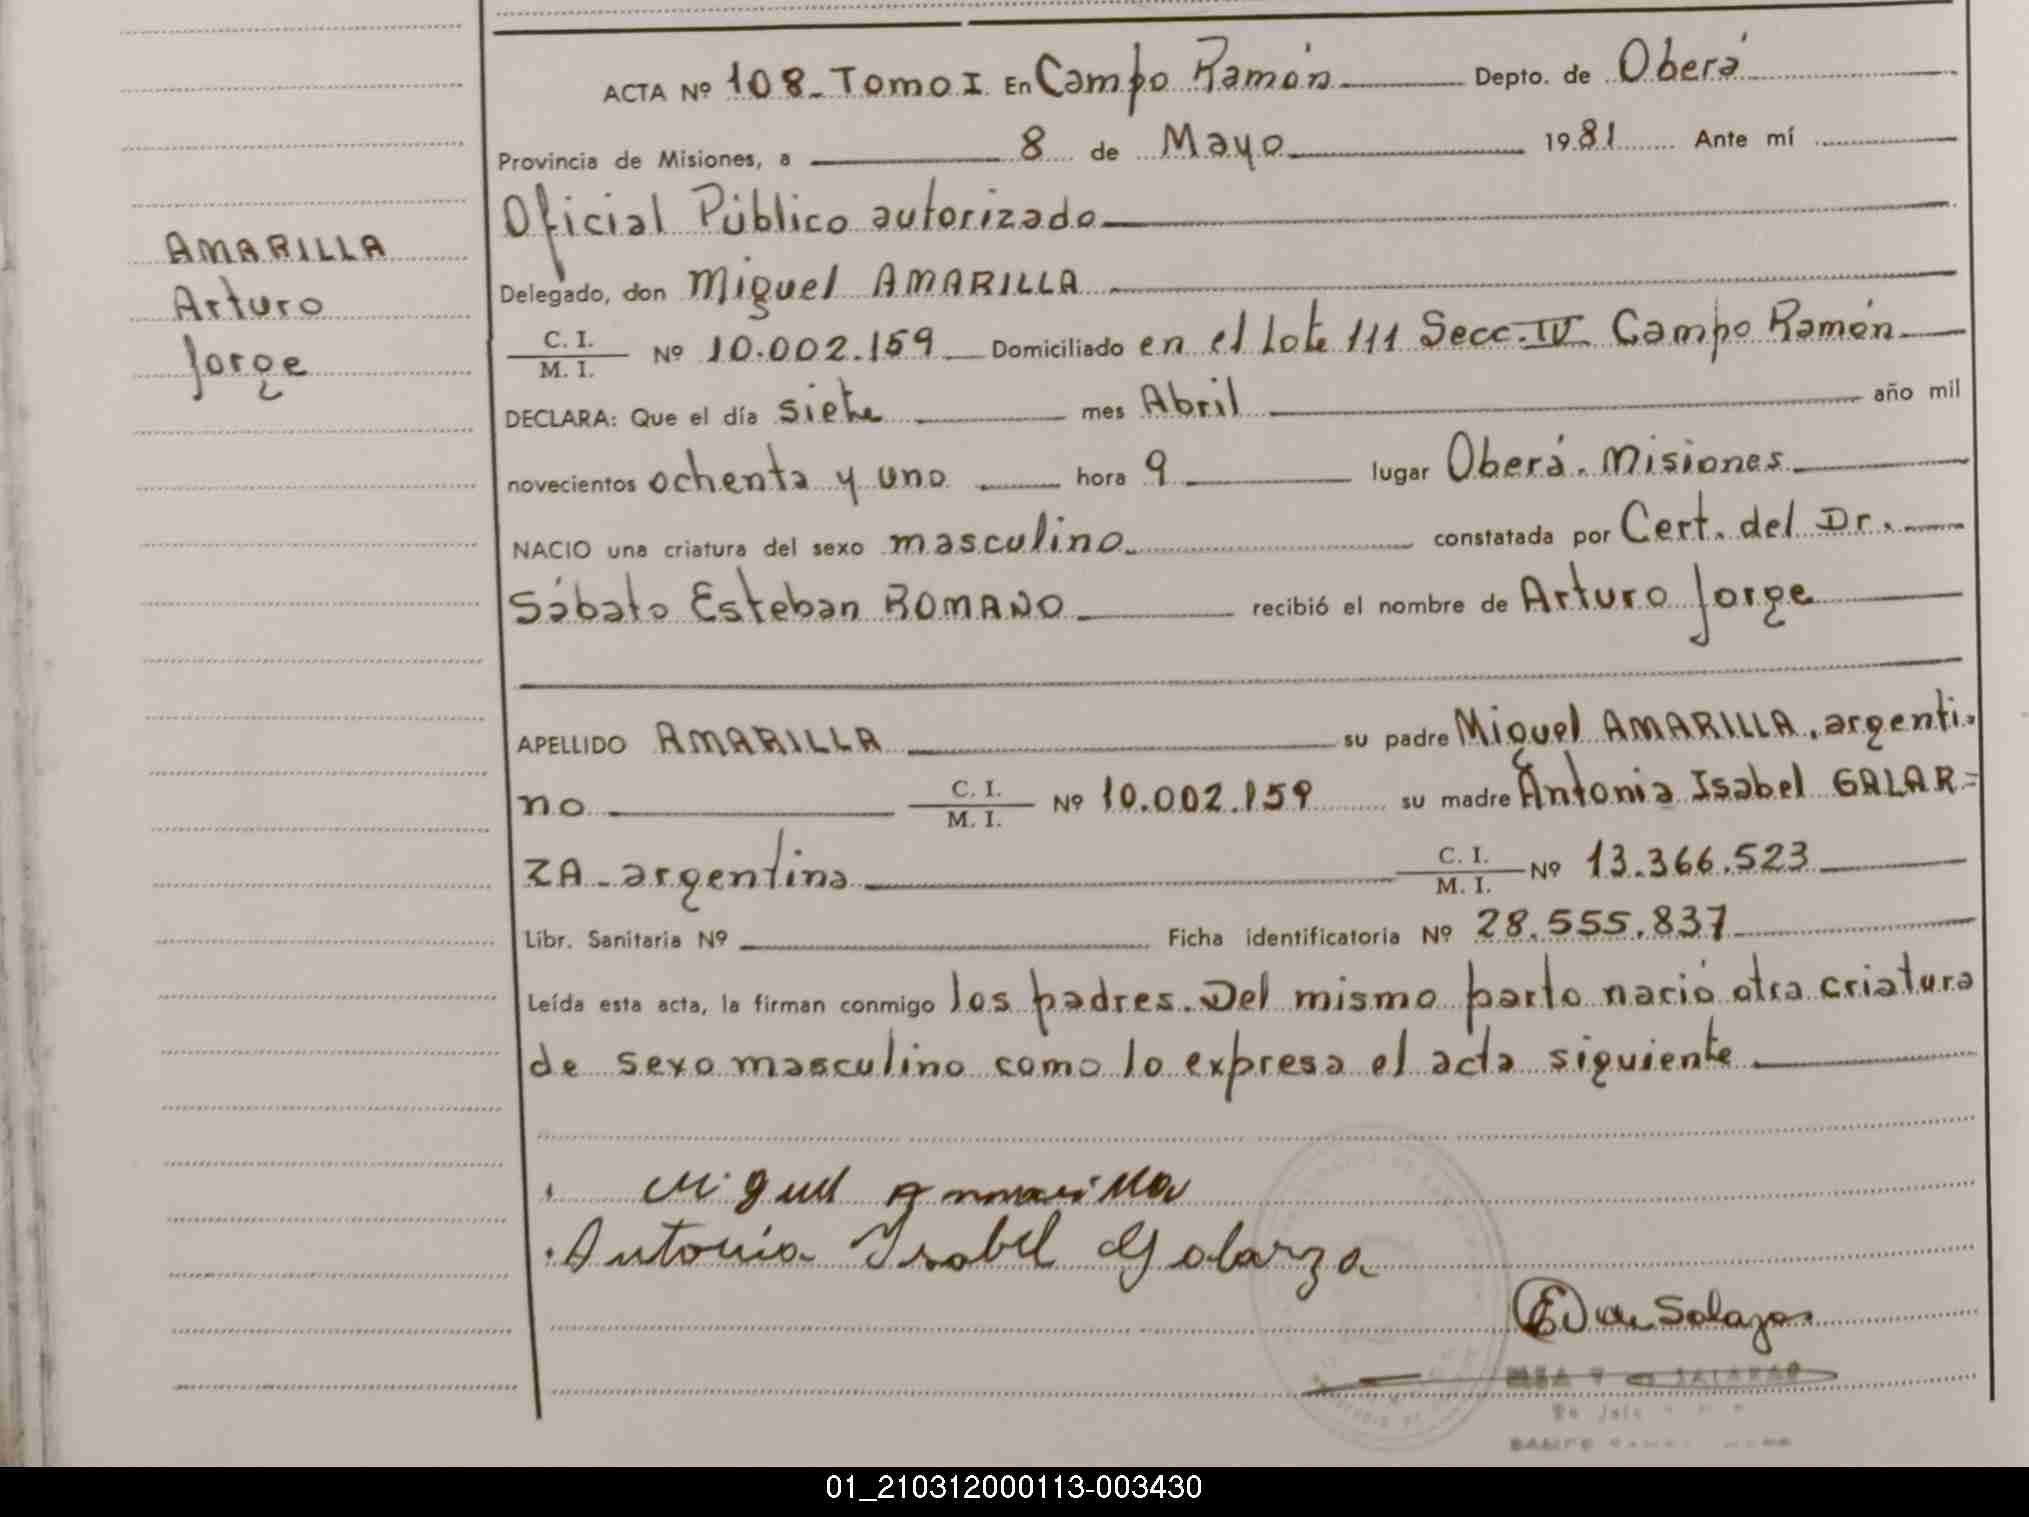 ACTA Nº 108 - Tomo I En Campo Ramón Depto. de Oberá
Provincia de Misiones, a 8 de Mayo 1981 Ante mí
Oficial Público autorizado
AMARILLA
Arturo
Jorge
Delegado, don Miguel AMARILLA
C. I.
M. I. Nº 10.002.159 Domiciliado en el Lote 111 Secc. IV Campo Ramón
DECLARA: Que el día siete mes Abril año mil
novecientos ochenta y uno hora 9 lugar Oberá. Misiones
NACIO una criatura del sexo masculino constatada por Cert. del Dr.
Sábato Esteban ROMANO recibió el nombre de Arturo Jorge
APELLIDO AMARILLA su padre Miguel AMARILLA, argenti-
no C. I.
M. I. Nº 10.002.159 su madre Antonia Isabel GALAR=
ZA - argentina C. I.
M. I. Nº 13.366.523
Libr. Sanitaria Nº Ficha identificatoria Nº 28.555.837
Leída esta acta, la firman conmigo los padres. Del mismo parto nació otra criatura
de sexo masculino como lo expresa el acta siguiente
Miguel Amarilla
Antonia Isabel Galarza
de Salazar
01_210312000113-003430